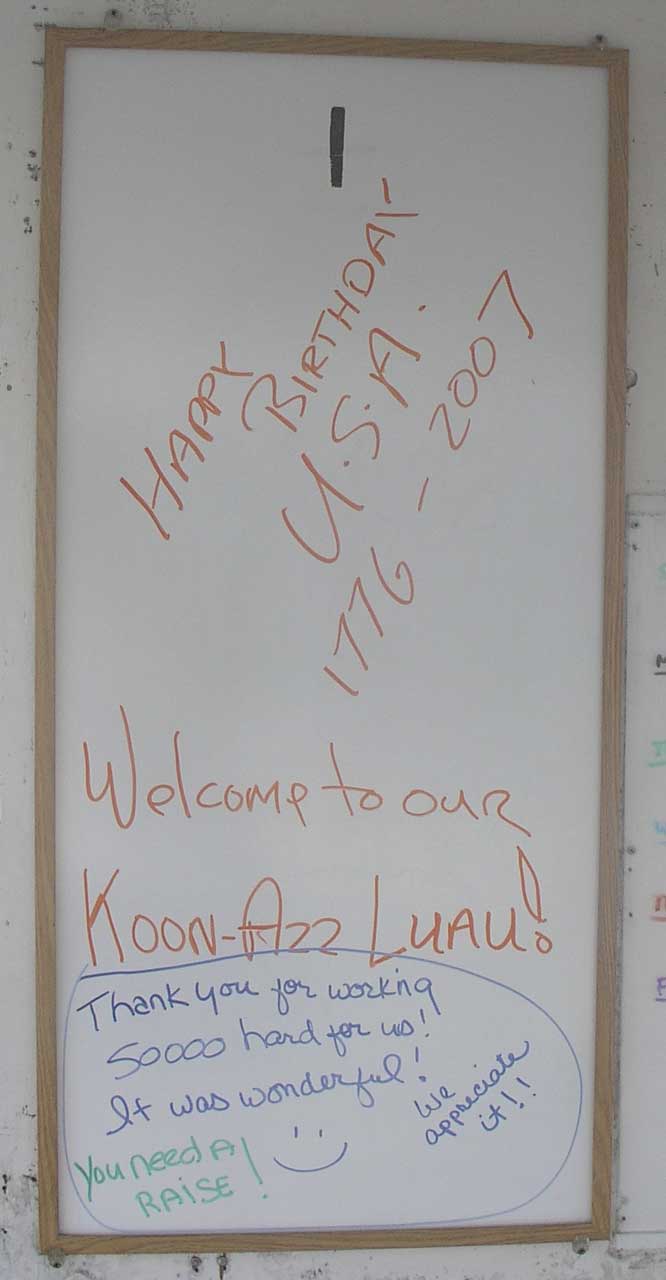 HAPPY
BIRTHDAY
U.S.A.
1776 - 2007
Welcome to our
KOON-AZZ LUAU!
Thank you for working
soooo hard for us!
It was wonderful!
We
appreciate
it!!
You need A
RAISE!